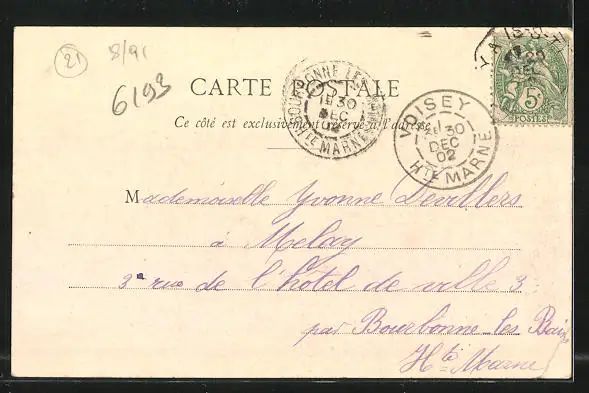 21
8/91
6193
CARTE POSTALE
Ce côté est exclusivement réservé à l'adresse
BOURBONNE LES BAINS
30
DEC
02
Hte MARNE
VOISEY
30
DEC
02
Hte MARNE
5c
POSTES
Mademoiselle Yvonne Devillers
à Melay
3 rue de l'hôtel de ville 3
par Bourbonne-les Bains
Hte Marne